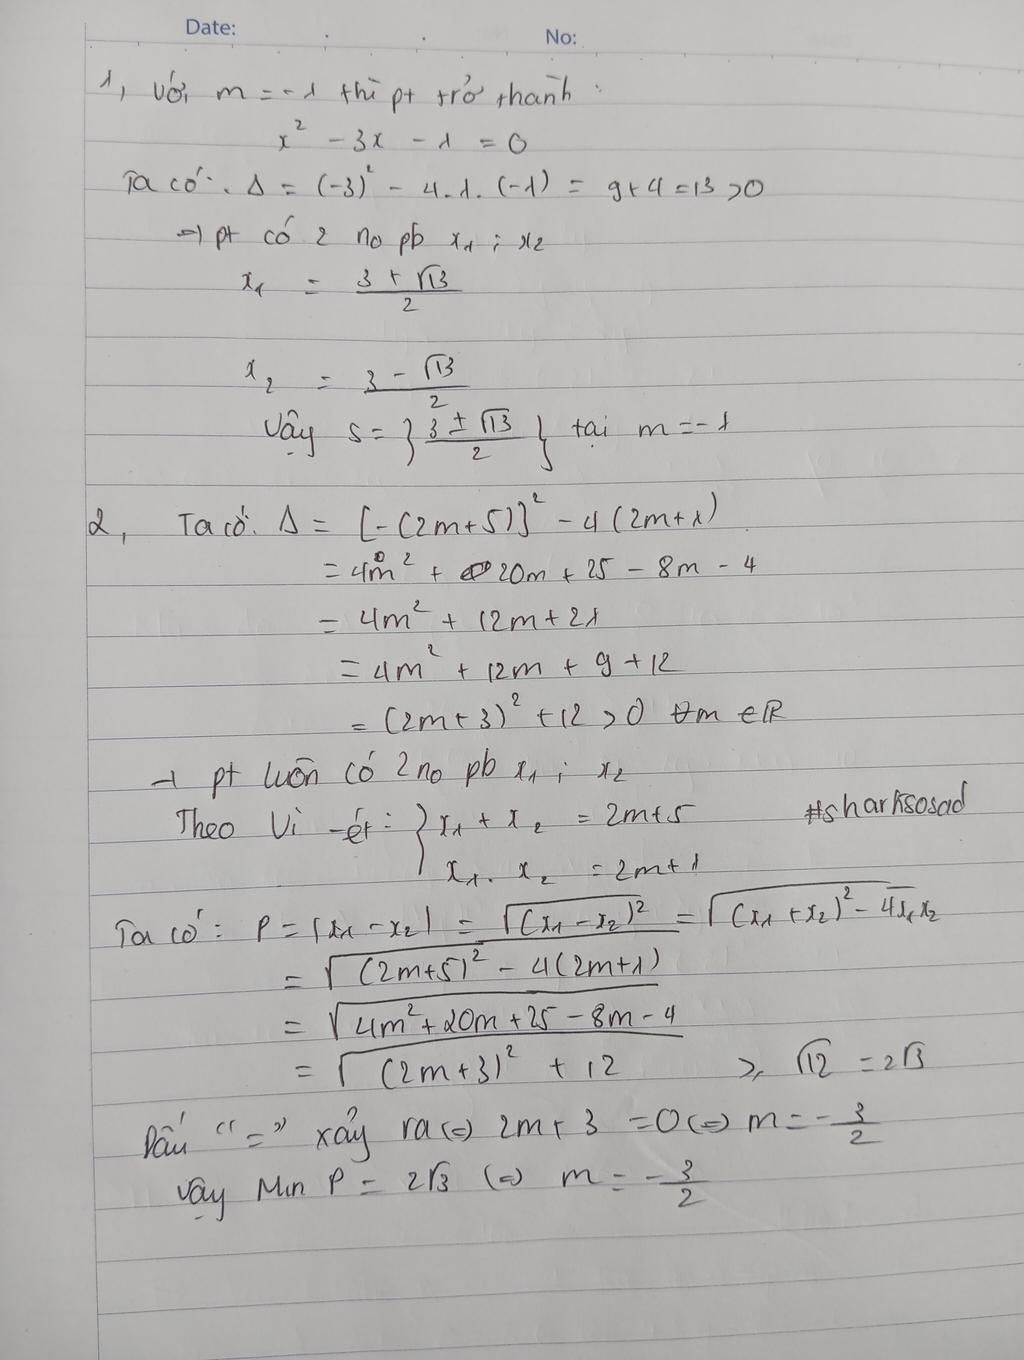 Date: No:
1, Với m = -1 thì pt trở thành:
x² - 3x - 1 = 0
Ta có: Δ = (-3)² - 4.1.(-1) = 9+4 = 13 >0
=> pt có 2 no pb x₁ ; x₂
x₁ = (3 + √13)/2
x₂ = (3 - √13)/2
Vậy S = {(3 ± √13)/2} tại m = -1
2, Ta có: Δ = [-(2m+5)]² - 4(2m+1)
= 4m² + 20m + 25 - 8m - 4
= 4m² + 12m + 21
= 4m² + 12m + 9 + 12
= (2m+3)² + 12 > 0 ∀m ∈ R
→ pt luôn có 2 no pb x₁ ; x₂
Theo Vi-ét: { x₁ + x₂ = 2m+5 #sharksosad
x₁. x₂ = 2m+1
Ta có: P = |x₁ - x₂| = √((x₁ - x₂)²) = √((x₁ + x₂)² - 4x₁x₂)
= √((2m+5)² - 4(2m+1))
= √(4m² + 20m + 25 - 8m - 4)
= √((2m+3)² + 12) ≥ √12 = 2√3
Dấu "=" xảy ra <=> 2m + 3 = 0 <=> m = -3/2
Vậy Min P = 2√3 <=> m = -3/2